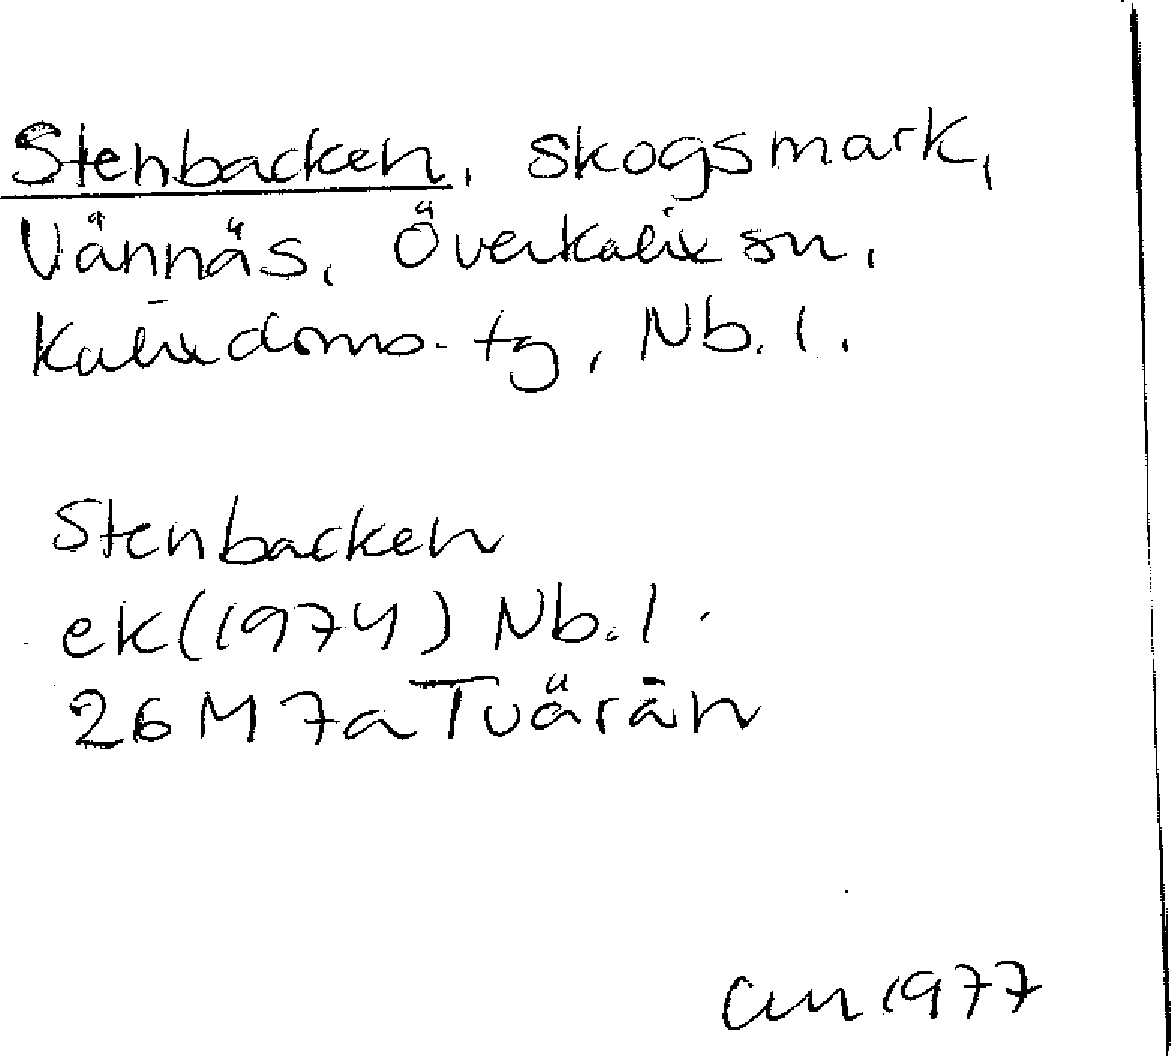 Stenbacken, skogsmark,
Vännäs, Överkalix sn,
Kalix doms. tg, Nb. l.
Stenbacken
ek (1974) Nb. l.
26 M 7a Tvärån
1977